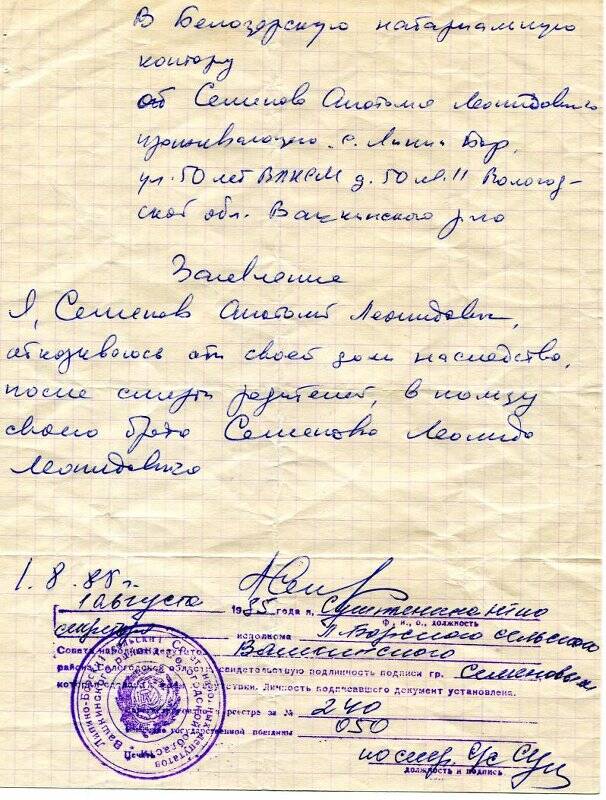 В Белозерскую натариальную
контору
от Семенова Анатолия Леонидовича
проживающего с. Липин Бор,
ул. 50 лет ВЛКСМ д. 50 кв. 11 Вологод-
ской обл. Вашкинского р-на
Заявление
Я, Семенов Анатолий Леонидович,
отказываюсь от своей доли наследства,
после смерти родителей, в пользу
своего брата Семенова Леонида
Леонидовича
1.8.85 г.
1 августа 1985 года я,
ф., и., о., должность
секретарь исполкома Л-Борского сельского
Совета народных депутатов Вашкинского
района Вологодской области свидетельствую подлинность подписи гр. Семеновым
Личность подписавшего документ установлена.
реестре за № 240
государственной пошлины 050
Печать
должность и подпись